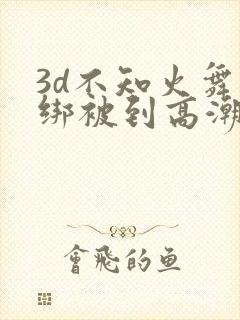 3d不知火舞
绑被到高潮
會飛的鱼